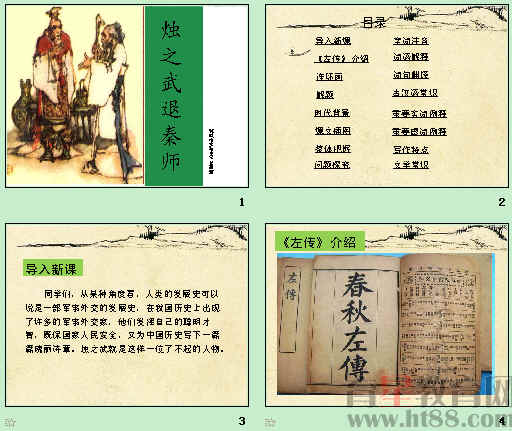 烛之武退秦师
1
目录
导入新课
《左传》介绍
连环画
解题
时代背景
课文插图
整体把握
问题探究
字词注音
词语解释
词句翻译
古汉语常识
重要实词例释
重要虚词例释
写作特点
文学常识
2
导入新课
同学们，从某种角度看，人类的发展史可以
说是一部军事外交的发展史，在我国历史上出现
了许多的军事外交家，他们发挥自己的聪明才
智，既保国家人民安全，又为中国历史写下一篇
篇瑰丽诗章。烛之武就是这样一位了不起的人物。
3
《左传》介绍
左傳
春秋左傳
4
www.ht88.com